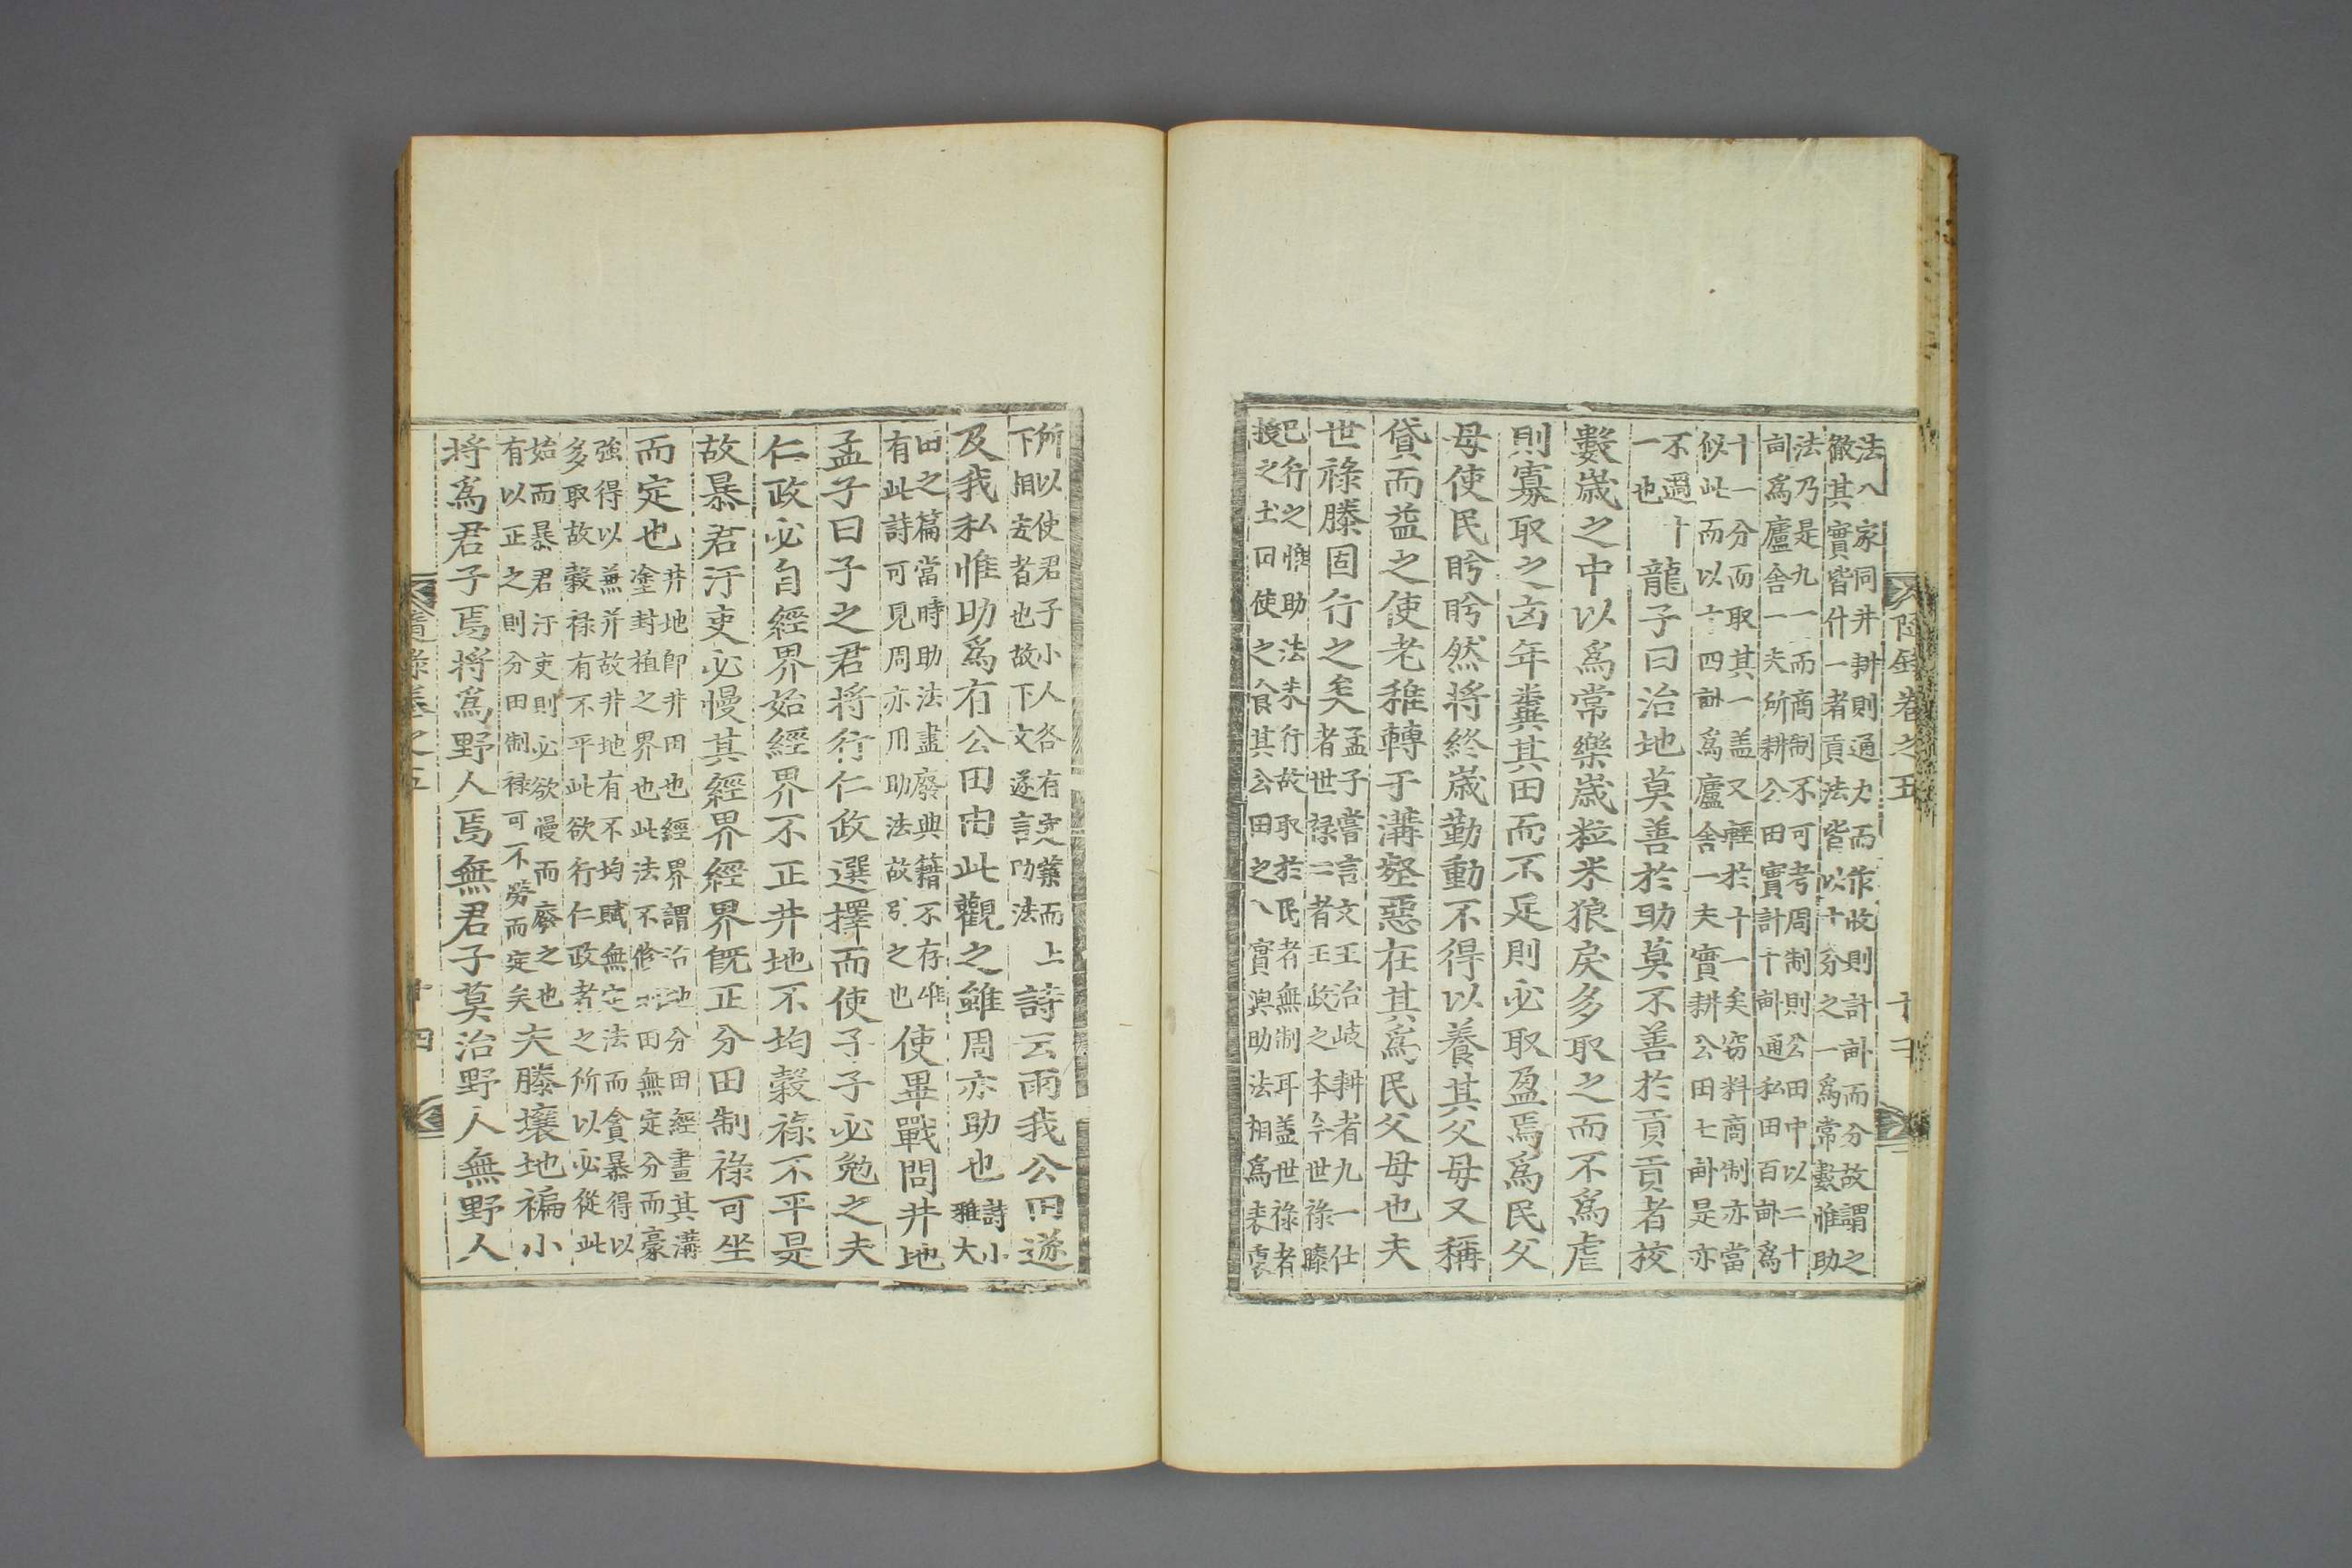 隨錄卷之五
法八家同井耕則通力而作收則計畝而分故謂之
徹其實皆什一者貢法皆以十分之一爲常數惟助
法乃是九一而商制不可考周制則公田中以二十
畝爲廬舍一夫所耕公田實計十畝通私田百畝爲
十一分而取其一盖又輕於十一矣窃料商制亦當
似此而以十四畝爲廬舍一夫實耕公田七畝是亦
不過十
一也
龍子曰治地莫善於助莫不善於貢貢者挍
數歲之中以爲常樂歲粒米狼戾多取之而不爲虐
則寡取之凶年糞其田而不足則必取盈焉爲民父
母使民盻盻然將終歲勤動不得以養其父母又稱
貸而益之使老稚轉于溝壑惡在其爲民父母也夫
世祿滕固行之矣
孟子嘗言文王治岐耕者九一仕
者世祿二者王政之本今世祿滕
已行之惟助法未行故取於民者無制耳盖世祿者
授之土田使之食其公田之入實與助法相爲表裏
所以使君子小人各有定業而上
下相安者也故下文遂言助法
詩云雨我公田遂
及我私惟助爲有公田由此觀之雖周亦助也
詩小
雅大
田之篇當時助法盡廢典籍不存惟
有此詩可見周亦用助法故引之也
使畢戰問井地
孟子曰子之君將行仁政選擇而使子子必勉之夫
仁政必自經界始經界不正井地不均穀祿不平是
故暴君汙吏必慢其經界經界旣正分田制祿可坐
而定也
井地卽井田也經界謂治地分田經畫其溝
塗封植之界也此法不修則田無定分而豪
強得以兼并故井地有不均賦無定法而貪暴得以
多取故穀祿有不平此欲行仁政者之所以必從此
始而暴君汙吏則必欲慢而廢之也
有以正之則分田制祿可不勞而定矣
夫滕壤地褊小
將爲君子焉將爲野人焉無君子莫治野人無野人
隨錄卷之五
十四